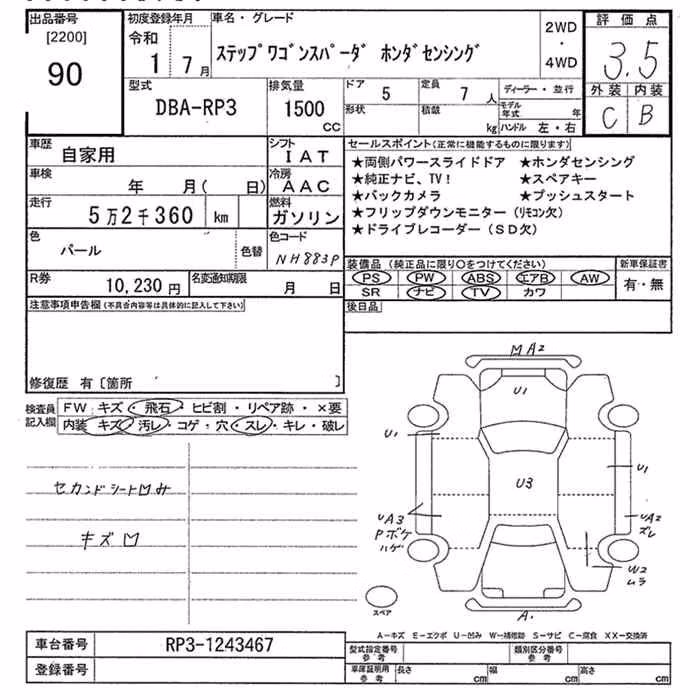 出品番号
[2200]
90
初度登録年月
令和
1 7月
車名・グレード
ステップワゴンスパーダ ホンダセンシング
2WD
・
4WD
評価点
3.5
外装 内装
C B
型式
DBA-RP3
排気量
1500
cc
ドア
5
定員
7 人
形状
積載
kg
ディーラー・並行
モデル年式 年
ハンドル 左・右
車歴
自家用
シフト
IAT
車検
年 月( 日)
冷房
AAC
走行
5万2千360 km
燃料
ガソリン
色
パール
色替
色コード
NH883P
R券
10,230円
名変通知期限
月 日
セールスポイント(正常に機能するものに限ります)
★両側パワースライドドア ★ホンダセンシング
★純正ナビ、TV! ★スペアキー
★バックカメラ ★プッシュスタート
★フリップダウンモニター(リモコン欠)
★ドライブレコーダー(SD欠)
装備品(純正品に限り○をつけてください)
PS PW ABS エアB AW
SR ナビ TV カワ
新車保証書
有・無
後日品
注意事項申告欄(不具合内容等は具体的に記入して下さい)
修復歴 有〔箇所 〕
検査員記入欄
FW キズ・飛石・ヒビ割・リペア跡・×要
内装 キズ・汚レ・コゲ・穴・スレ・キレ・破レ
セカンドシート凹み
キズ凹
MA2
U1
U1
U3
U1
UA3
Pボケ
ハゲ
UA2
ズレ
W2
ムラ
A・
スペア
A－キズ E－エクボ U－凹み W－補修跡 S－サビ C－腐食 XX－交換済
車台番号
RP3-1243467
登録番号
型式指定番号
参考
類別区分番号
参考
車庫証明用
参考
長さ cm
幅 cm
高さ cm